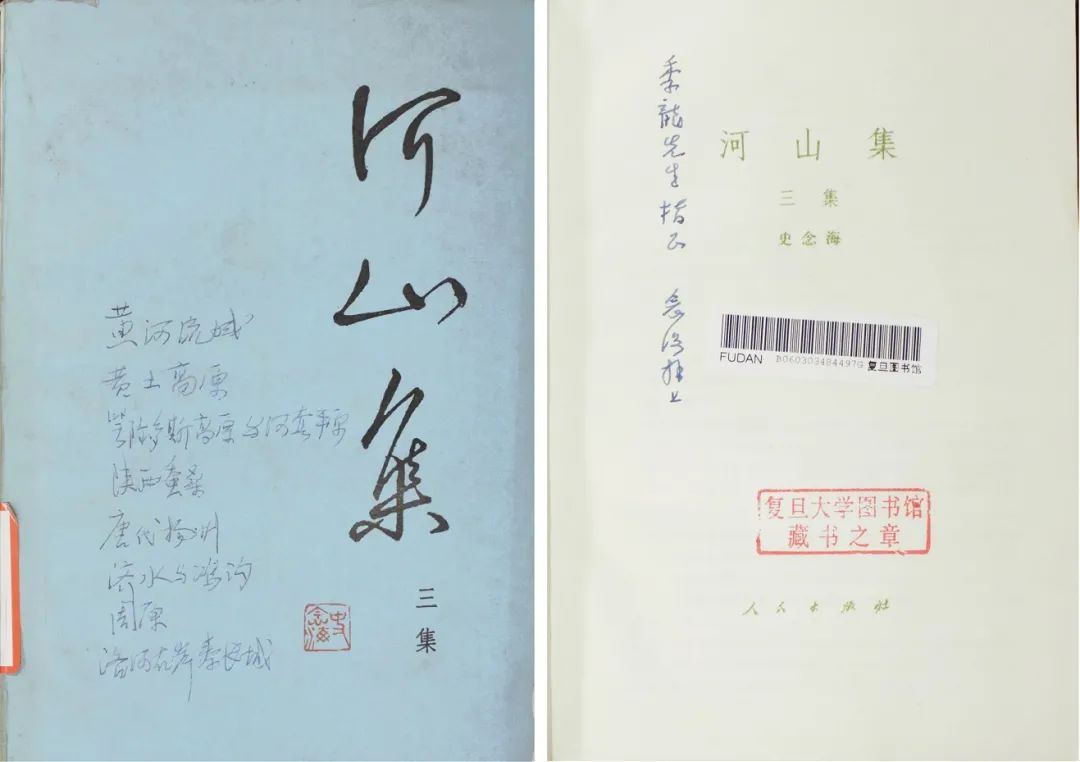 河山集
三集
史念海
黄河流域
黄土高原
鄂尔多斯高原与河套平原
陕西蚕桑
唐代扬州
济水与鸿沟
周原
洛河右岸秦长城
季龙先生指正
念海拜上
河山集
三集
史念海
FUDAN
B060303484497G
复旦图书馆
复旦大学图书馆
藏书之章
人民出版社